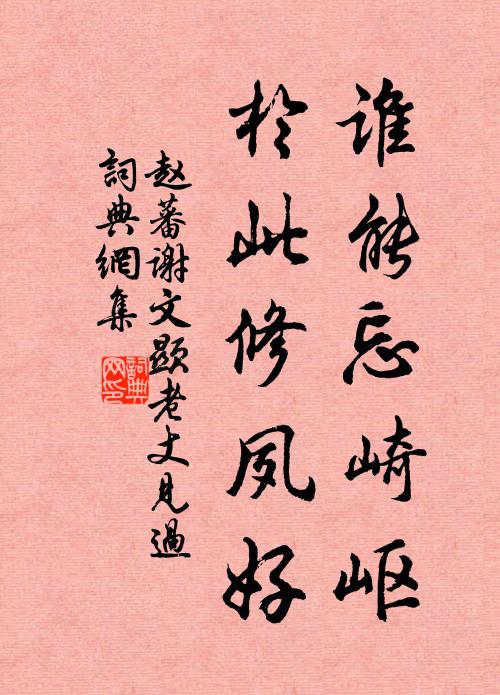 谁能忘崎岖
於此修夙好
赵蕃谢文显老丈见过
詞典網集
詞典网印